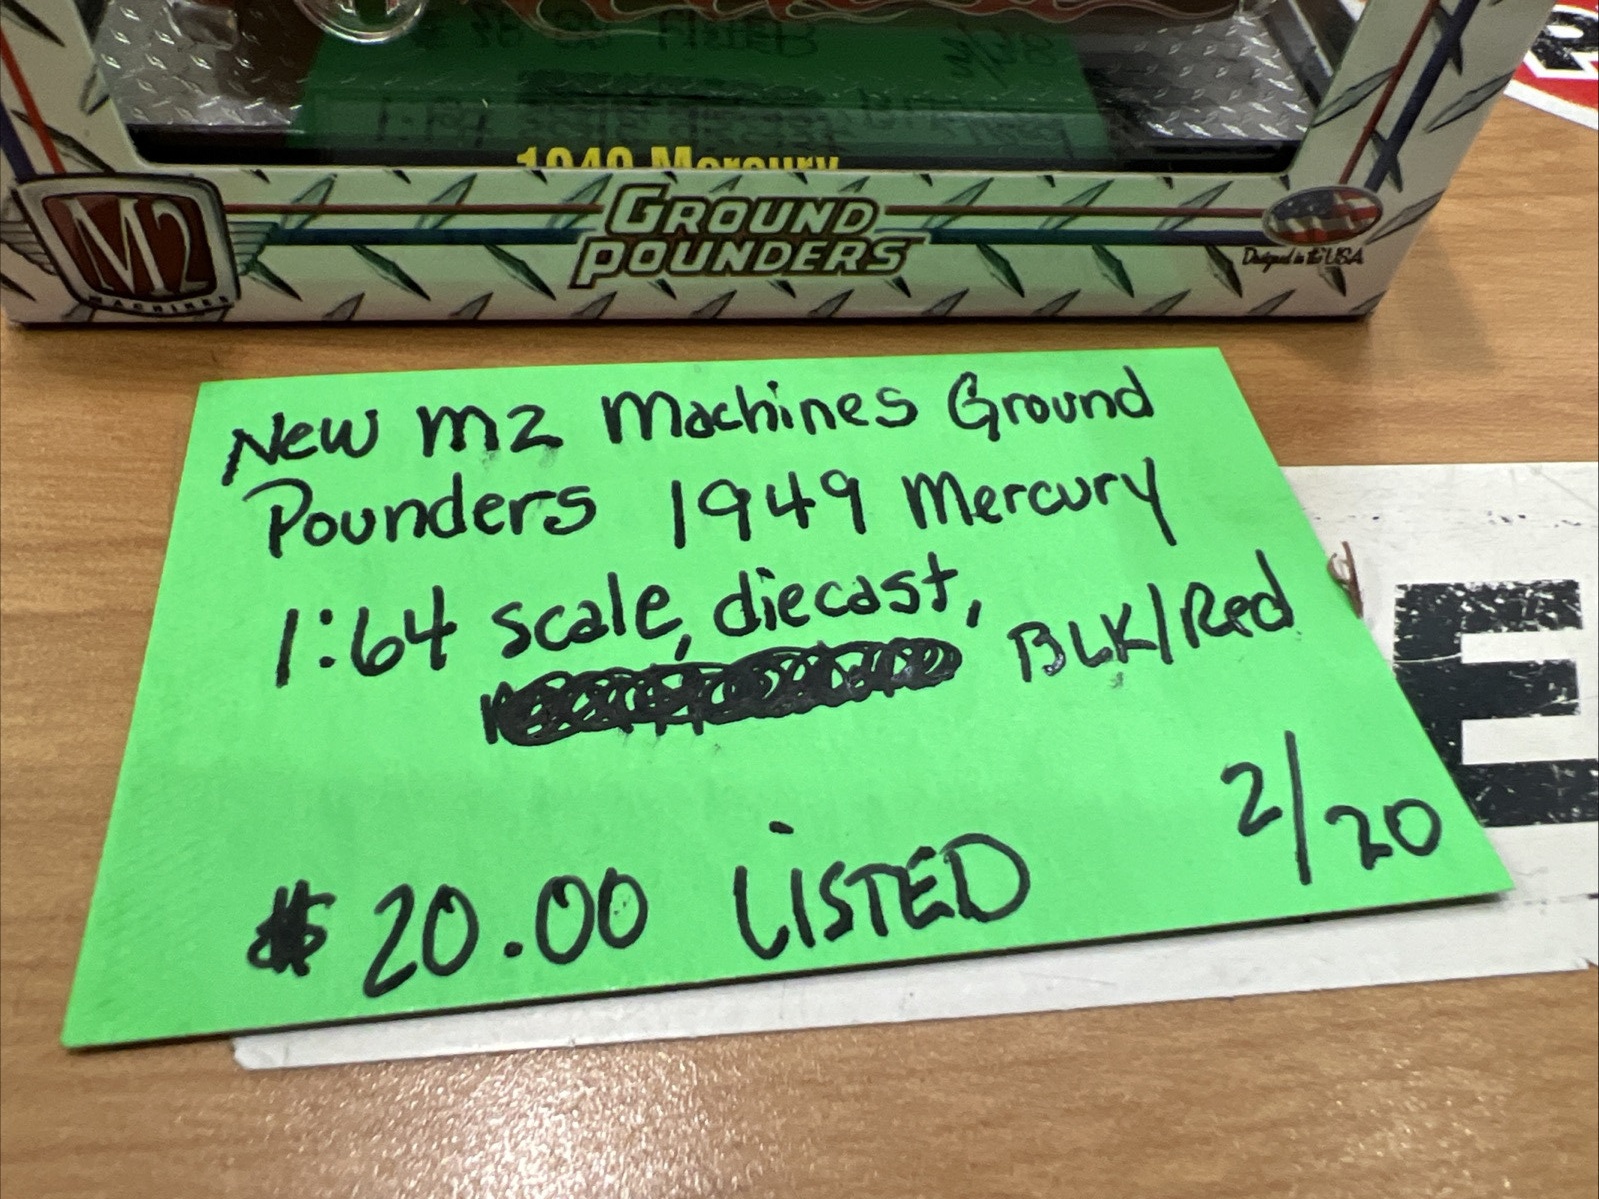 1949 Mercury
GROUND
POUNDERS
M2
MACHINES
Designed in the USA
New M2 Machines Ground
Pounders 1949 Mercury
1:64 scale, diecast,
BLK/Red
2/20
$20.00 LISTED
E